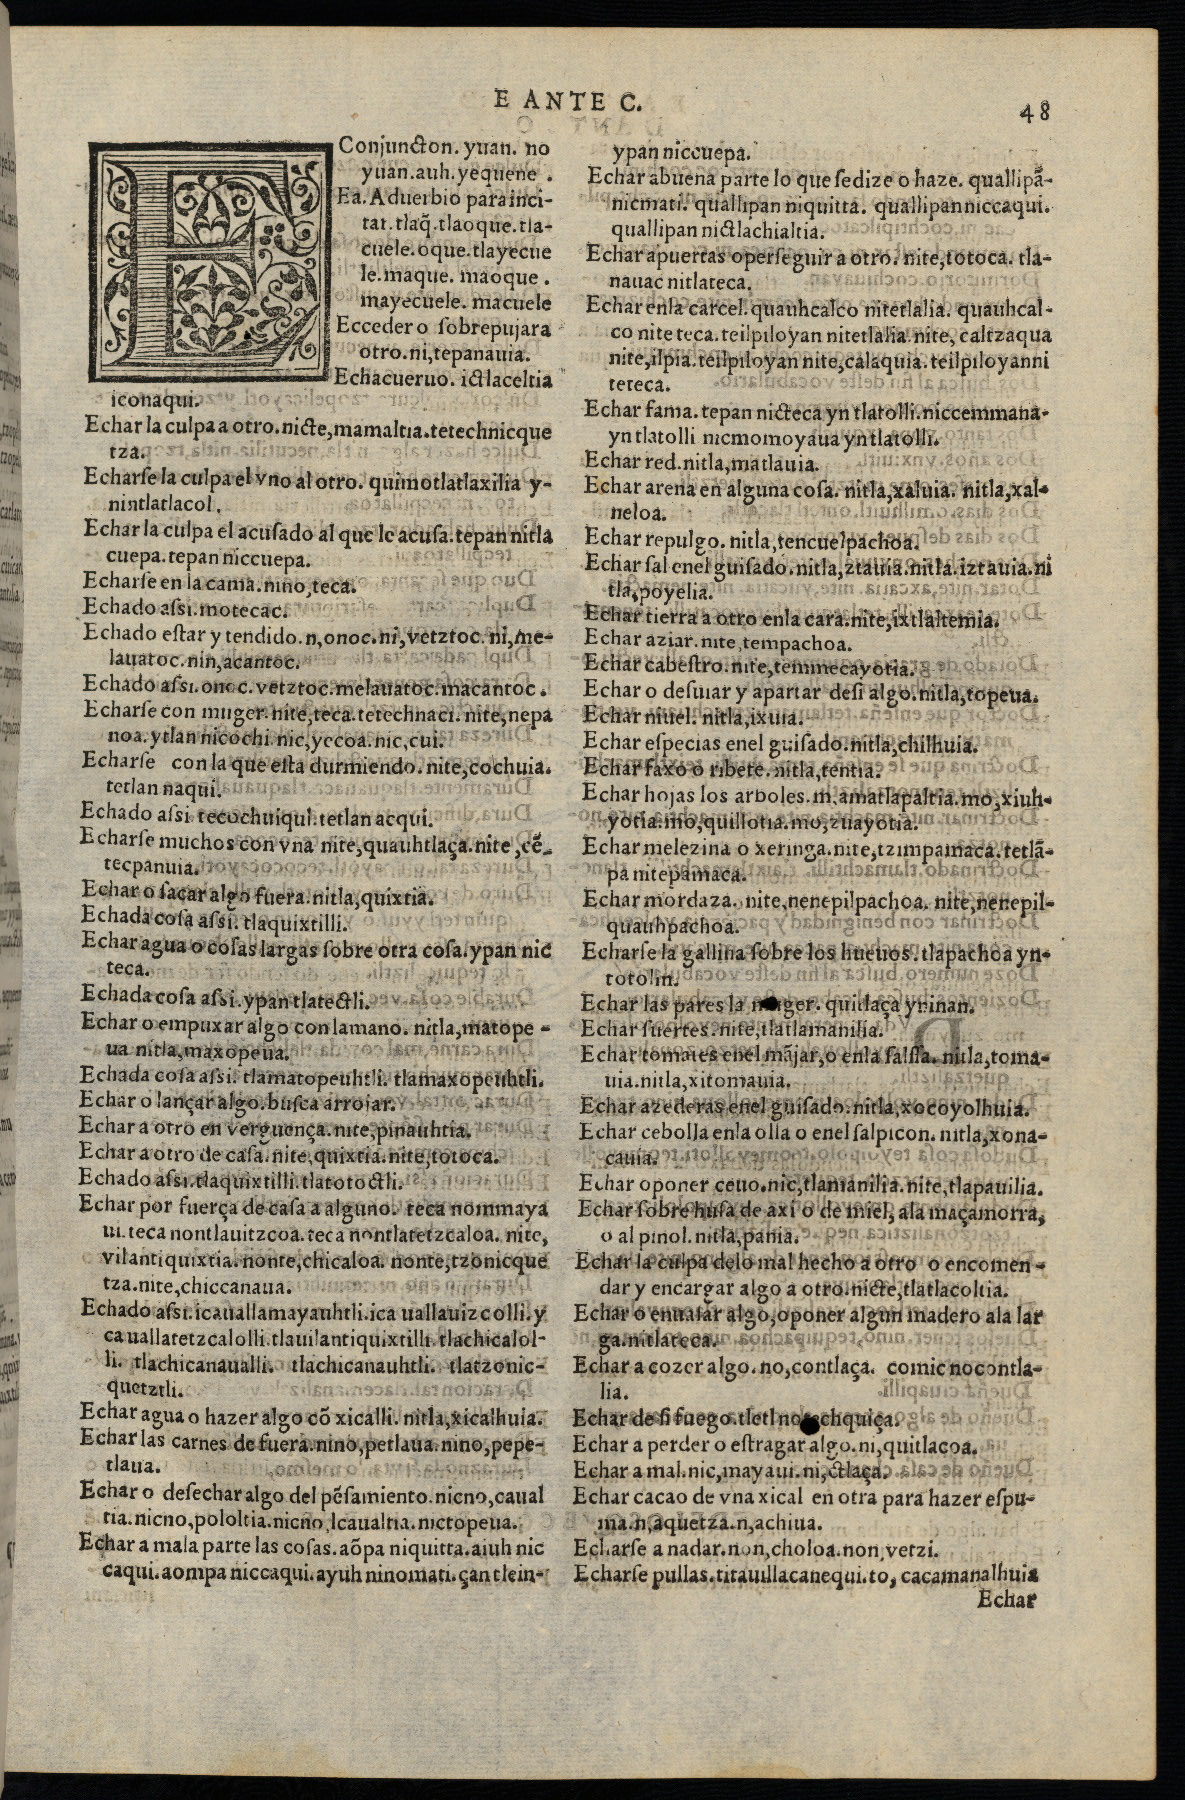 E ANTE C.
48
E Conjunction. yuan. no
yuan. auh. yequene.
Ea. Aduerbio para inci-
tar. tlaq̃. tlaoque. tla-
cuele. oque. tlayecue
le. maque. maoque.
mayecuele. macuele
Ecceder o ſobrepujara
otro. ni, tepanauia.
Echacueruo. ictlaceltia
iconaqui.
Echar la culpa a otro. nicte, mamaltia. tetechnicque
tza.
Echarſe la culpa el vno al otro. quimotlatlaxilia y-
nintlatlacol.
Echar la culpa el acuſado al que le acuſa. tepan nitla
cuepa. tepan niccuepa.
Echarſe en la cama. nino, teca.
Echado aſsi. motecac.
Echado eſtar y tendido. n, onoc. ni, vetztoc. ni, me-
lauatoc. nin, acantoc.
Echado aſsi. onoc. vetztoc. melauatoc. macantoc.
Echarſe con muger. nite, teca. tetechnaci. nite, nepa
noa. ytlan nicochi. nic, yecoa. nic, cui.
Echarſe con la que eſta durmiendo. nite, cochuia.
tetlan naqui.
Echado aſsi. tecochuiqui. tetlan acqui.
Echarſe muchos con vna nite, quauhtlaça. nite, cẽ-
tecpanuia.
Echar o ſacar algo fuera. nitla, quixtia.
Echada coſa aſsi. tlaquixtilli.
Echar agua o coſas largas ſobre otra coſa. ypan nic
teca.
Echada coſa aſsi. ypan tlatectli.
Echar o empuxar algo con la mano. nitla, matope-
ua nitla, maxopeua.
Echada coſa aſsi. tlamatopeuhtli. tlamaxopeuhtli.
Echar o lançar algo. buſca arrojar.
Echar a otro en verguença. nite, pinauhtia.
Echar a otro de caſa. nite, quixtia. nite, totoca.
Echado aſsi. tlaquixtilli. tlatotoctli.
Echar por fuerça de caſa a alguno. teca nommaya
ui. teca nontlauitzcoa. teca nontlatetzcaloa. nite,
vilantiquixtia. nonte, chicaloa. nonte, tzonicque
tza. nite, chiccanaua.
Echado aſsi. icauallamayauhtli. ica uallauizcolli. y
ca uallatetzcalolli. tlauilantiquixtilli. tlachicalol-
li. tlachicanaualli. tlachicanauhtli. tlatzonic-
quetztli.
Echar agua o hazer algo cõ xicalli. nitla, xicalhuia.
Echar las carnes de fuera. nino, petlaua. nino, pepe-
tlaua.
Echar o deſechar algo del pẽſamiento. nicno, caual
tia. nicno, pololtia. nicno, lcaualtia. nictopeua.
Echar a mala parte las coſas. aõpa niquitta. aiuh nic
caqui. aompa niccaqui. ayuh ninomati. çan tlein-
ypan niccuepa.
Echar abuena parte lo que ſe dize o haze. quallipã-
nicmati. quallipan niquitta. quallipanniccaqui.
quallipan nictlachialtia.
Echar apuertas operſeguir a otro. nite, totoca. tla-
nauac nitlateca.
Echar enla carcel. quauhcalco nitetlalia. quauhcal-
co nite teca. teilpiloyan nitetlalia. nite, caltzaqua
nite, ilpia. teilpiloyan nite, calaquia. teilpiloyanni
teteca.
Echar fama. tepan nicteca yn tlatolli. niccemmana-
yn tlatolli nicmomoyaua yn tlatolli.
Echar red. nitla, matlauia.
Echar arena en alguna coſa. nitla, xaluia. nitla, xal-
neloa.
Echar repulgo. nitla, tencuelpachoa.
Echar ſal enel guiſado. nitla, ztauia. nitla. iztauia. ni
tla, poyelia.
Echar tierra a otro enla cara. nite, ixtlaltemia.
Echar aziar. nite, tempachoa.
Echar cabeſtro. nite, temmecayotia.
Echar o deſuiar y apartar deſi algo. nitla, topeua.
Echar niuel. nitla, ixuia.
Echar eſpecias enel guiſado. nitla, chilhuia.
Echar faxo o ribete. nitla, tentia.
Echar hojas los arboles. m, amatlapaltia. mo, xiuh-
yotia. mo, quillotia. mo, zuayotia.
Echar melezina o xeringa. nite, tzimpamaca. tetlã-
pa nitepamaca.
Echar mordaza. nite, nenepilpachoa. nite, nenepil-
quauhpachoa.
Echarſe la gallina ſobre los hueuos. tlapachoa yn-
totolin.
Echar las pares la muger. quitlaça ynnan.
Echar ſuertes. nite, tlatlamanilia.
Echar tomates enel mãjar, o enla ſalſſa. nitla, toma-
uia. nitla, xitomauia.
Echar azederas enel guiſado. nitla, xocoyolhuia.
Echar cebolla enla olla o enel ſalpicon. nitla, xona-
cauia.
Echar oponer ceuo. nic, tlamanilia. nite, tlapauilia.
Echar ſobre huſa de axi o de miel, ala maçamorra,
o al pinol. nitla, pania.
Echar la culpa delo mal hecho a otro o encomen-
dar y encargar algo a otro. nicte, tlatlacoltia.
Echar o enuaſar algo, oponer algun madero ala lar
ga. nitlateca.
Echar a cozer algo. no, contlaça. comic nocontla-
lia.
Echar de ſi fuego. tletl notechquiça.
Echar a perder o eſtragar algo. ni, quitlacoa.
Echar a mal. nic, mayaui. ni, ctlaça.
Echar cacao de vna xical en otra para hazer eſpu-
ma. n, aquetza. n, achiua.
Echarſe a nadar. non, choloa. non, vetzi.
Echarſe pullas. titauillacanequi. to, cacamanalhuia
Echar